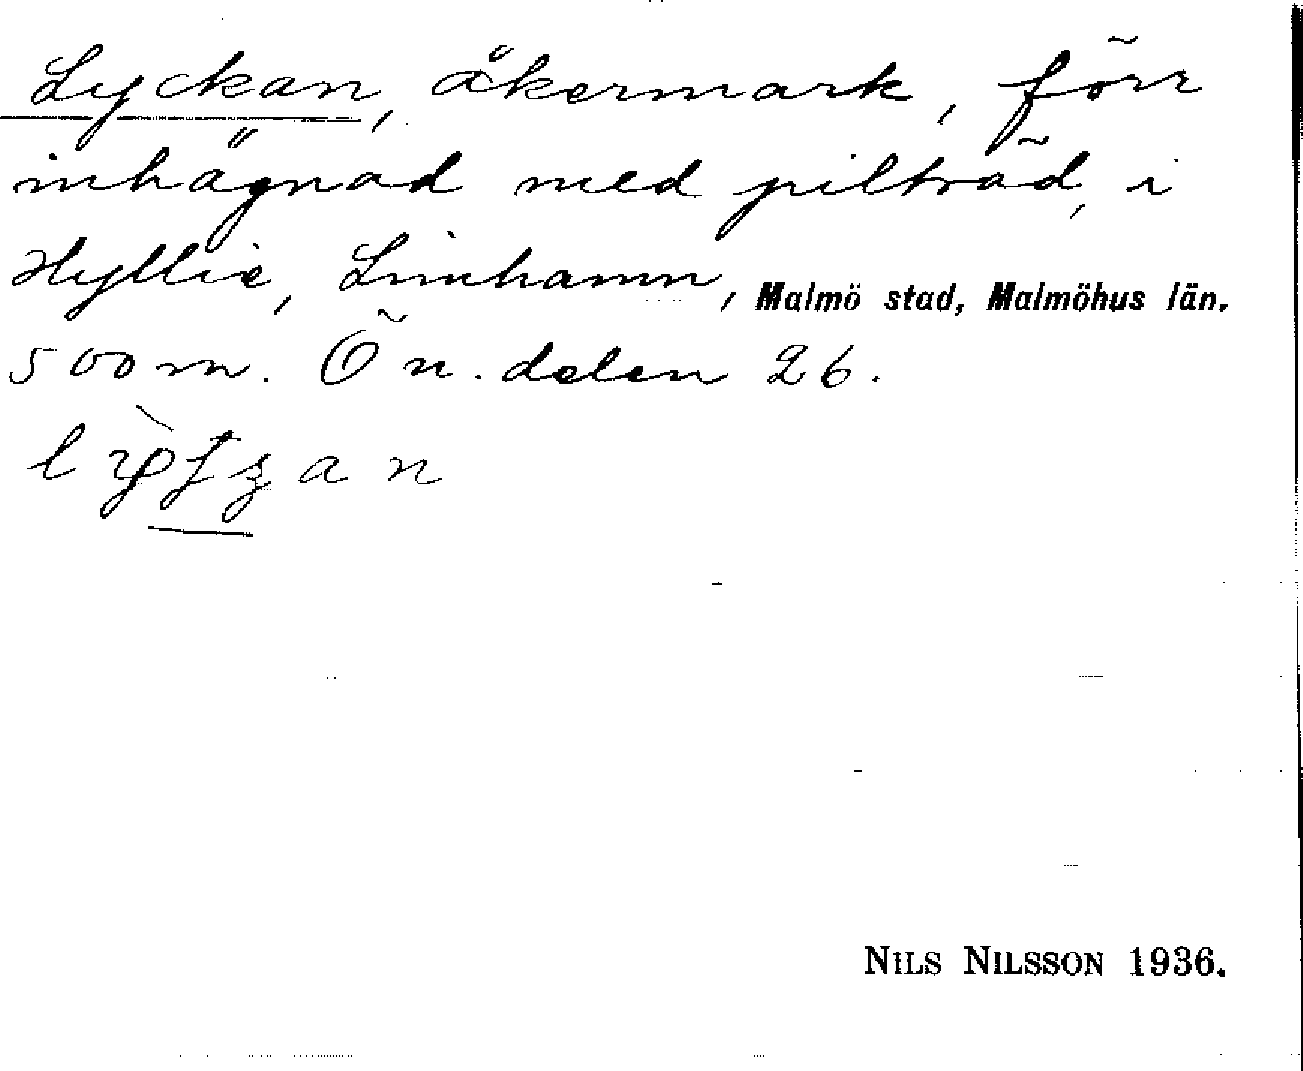 Lyckan, åkermark, förr
inhägnad med pilträd, i
Hyllie, Limhamn, Malmö stad, Malmöhus län.
500 m. Ö n. delen 26.
NILS NILSSON 1936.